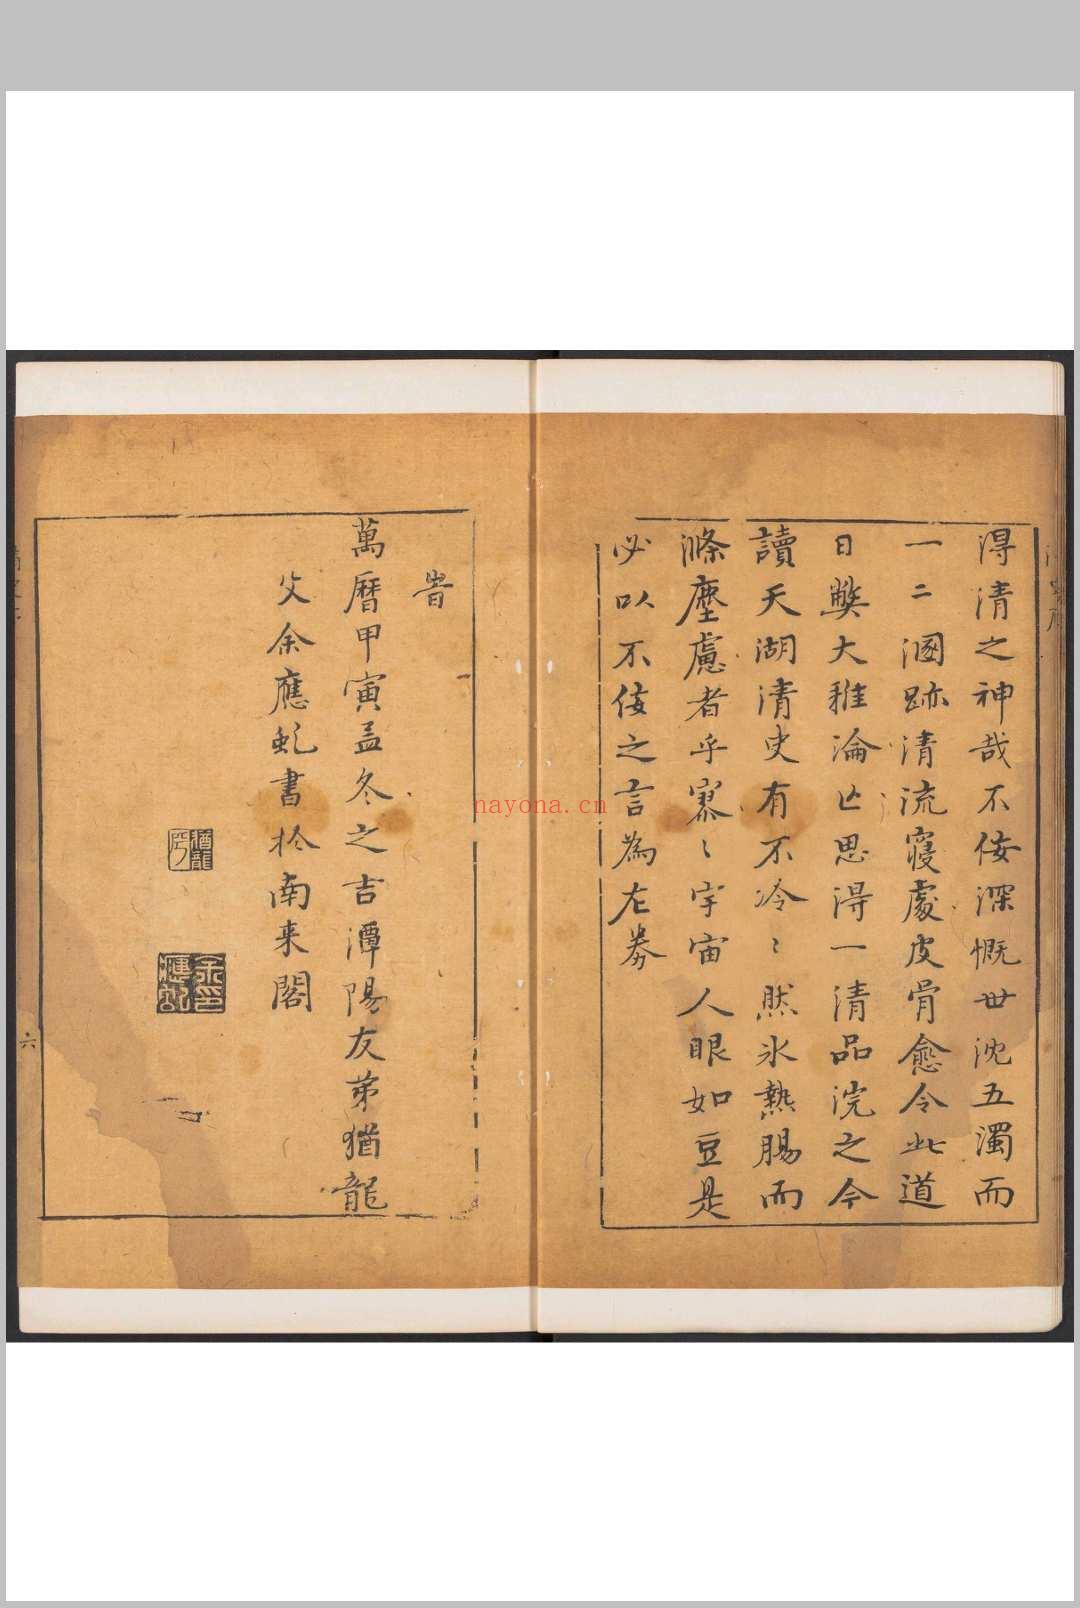 得清之神哉不佞深慨世沈五濁而
一二溷跡清流寢處皮骨愈令此道
日獘大雅淪亡思得一清品浣之今
讀天湖清史有不冷〻然氷熱腸而
滌塵慮者乎寥〻宇宙人眼如豆是
必以不佞之言為左劵
旹
萬曆甲寅孟冬之吉潭陽友弟猶龍
父余應虬書於南来閣
猶龍
余應虬印
六
nayona.cn